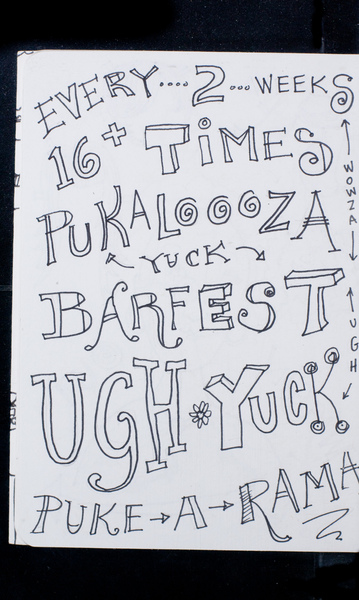 EVERY....2...WEEKS
16+ TIMES
PUKALOOOZA
YUCK
BARFEST
UGH YUCK
PUKE→A→RAMA
WOWZA
UGH